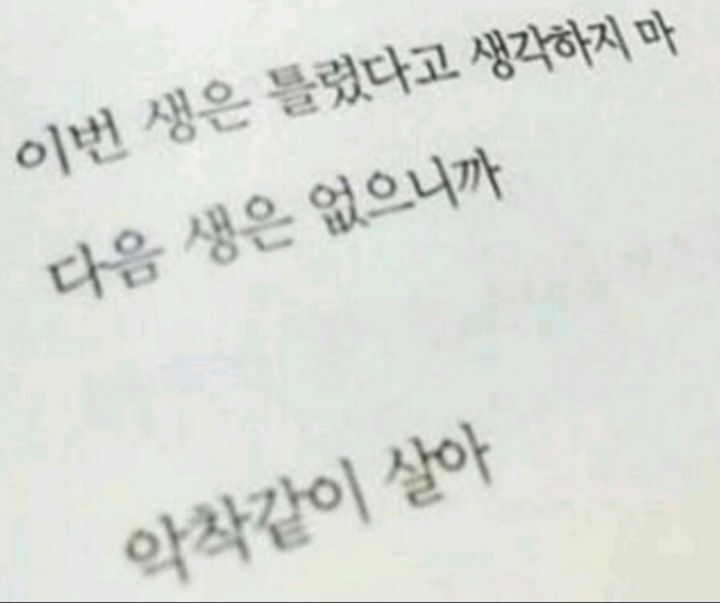 이번 생은 틀렸다고 생각하지 마
다음 생은 없으니까
악착같이 살아